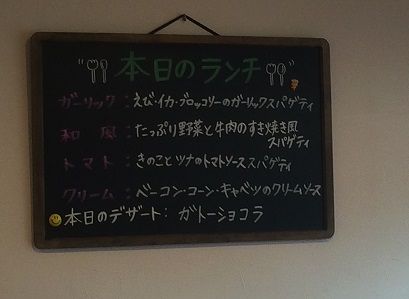 本日のランチ
ガーリック：えび・イカ・ブロッコリーのガーリックスパゲティ
和風：たっぷり野菜と牛肉のすき焼き風
スパゲティ
トマト：きのことツナのトマトソーススパゲティ
クリーム：ベーコン・コーン・キャベツのクリームソース
本日のデザート：ガトーショコラ